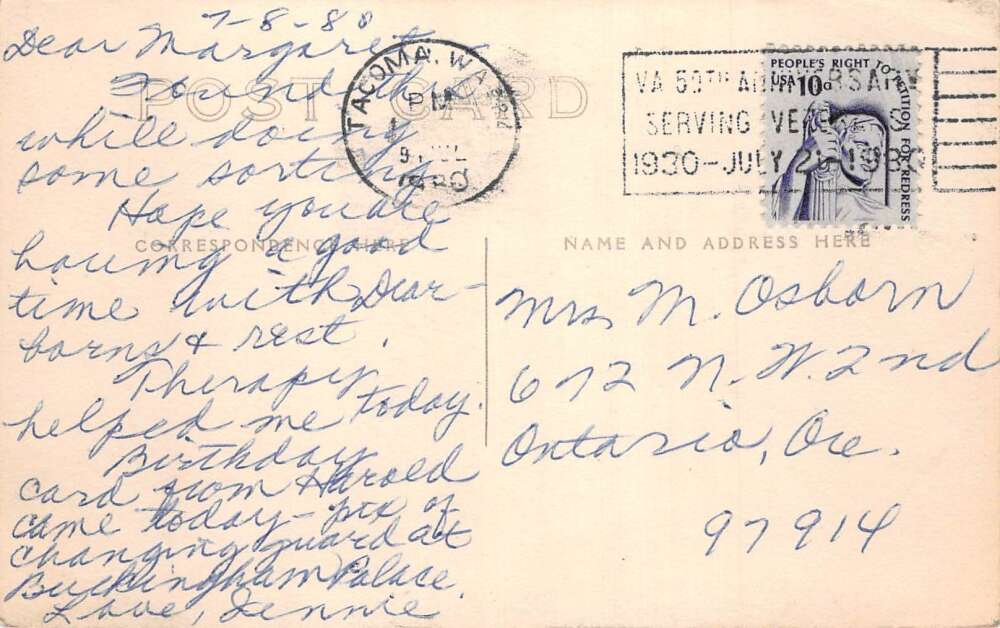 7-8-80
Dear Margaret,
Found this
while doing
some sorting.
Hope you are
having a good
time with Dear-
borns & rest.
Therapy
helped me today.
Birthday
card from Harold
came today - pix of
changing guard at
Buckingham Palace.
Love, Jennie
POST CARD
CORRESPONDENCE HERE
TACOMA, WA
PM
9 JUL
1980
VA 50TH ANNIVERSARY
SERVING VETERANS
1930-JULY 21-1980
PEOPLE'S RIGHT TO PETITION FOR REDRESS
USA 10c
NAME AND ADDRESS HERE
Mrs M. Osborn
672 N.W. 2nd
Ontario, Ore.
97914